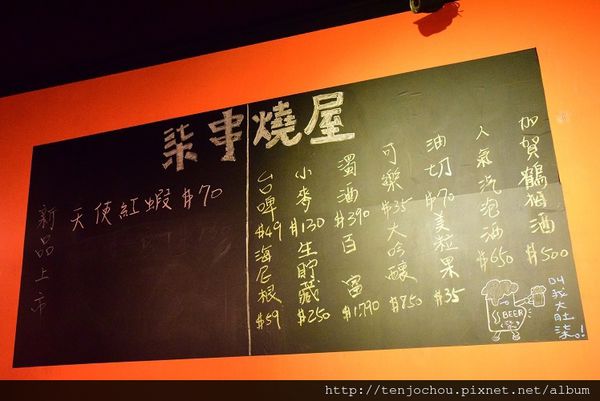 柒串燒屋
新品上市
天使紅蝦 $70
加賀鶴 酒 $500
人氣汽泡酒 $650
油切 $70 美粒果 $35
可樂 $35 大吟釀 $750
濁酒 $390 百富 $1790
小麥 $130 生貯藏 $250
台啤 $49 海尼根 $59
BEER
叫我大肚柒。!
http://tenjochou.pixnet.net/album